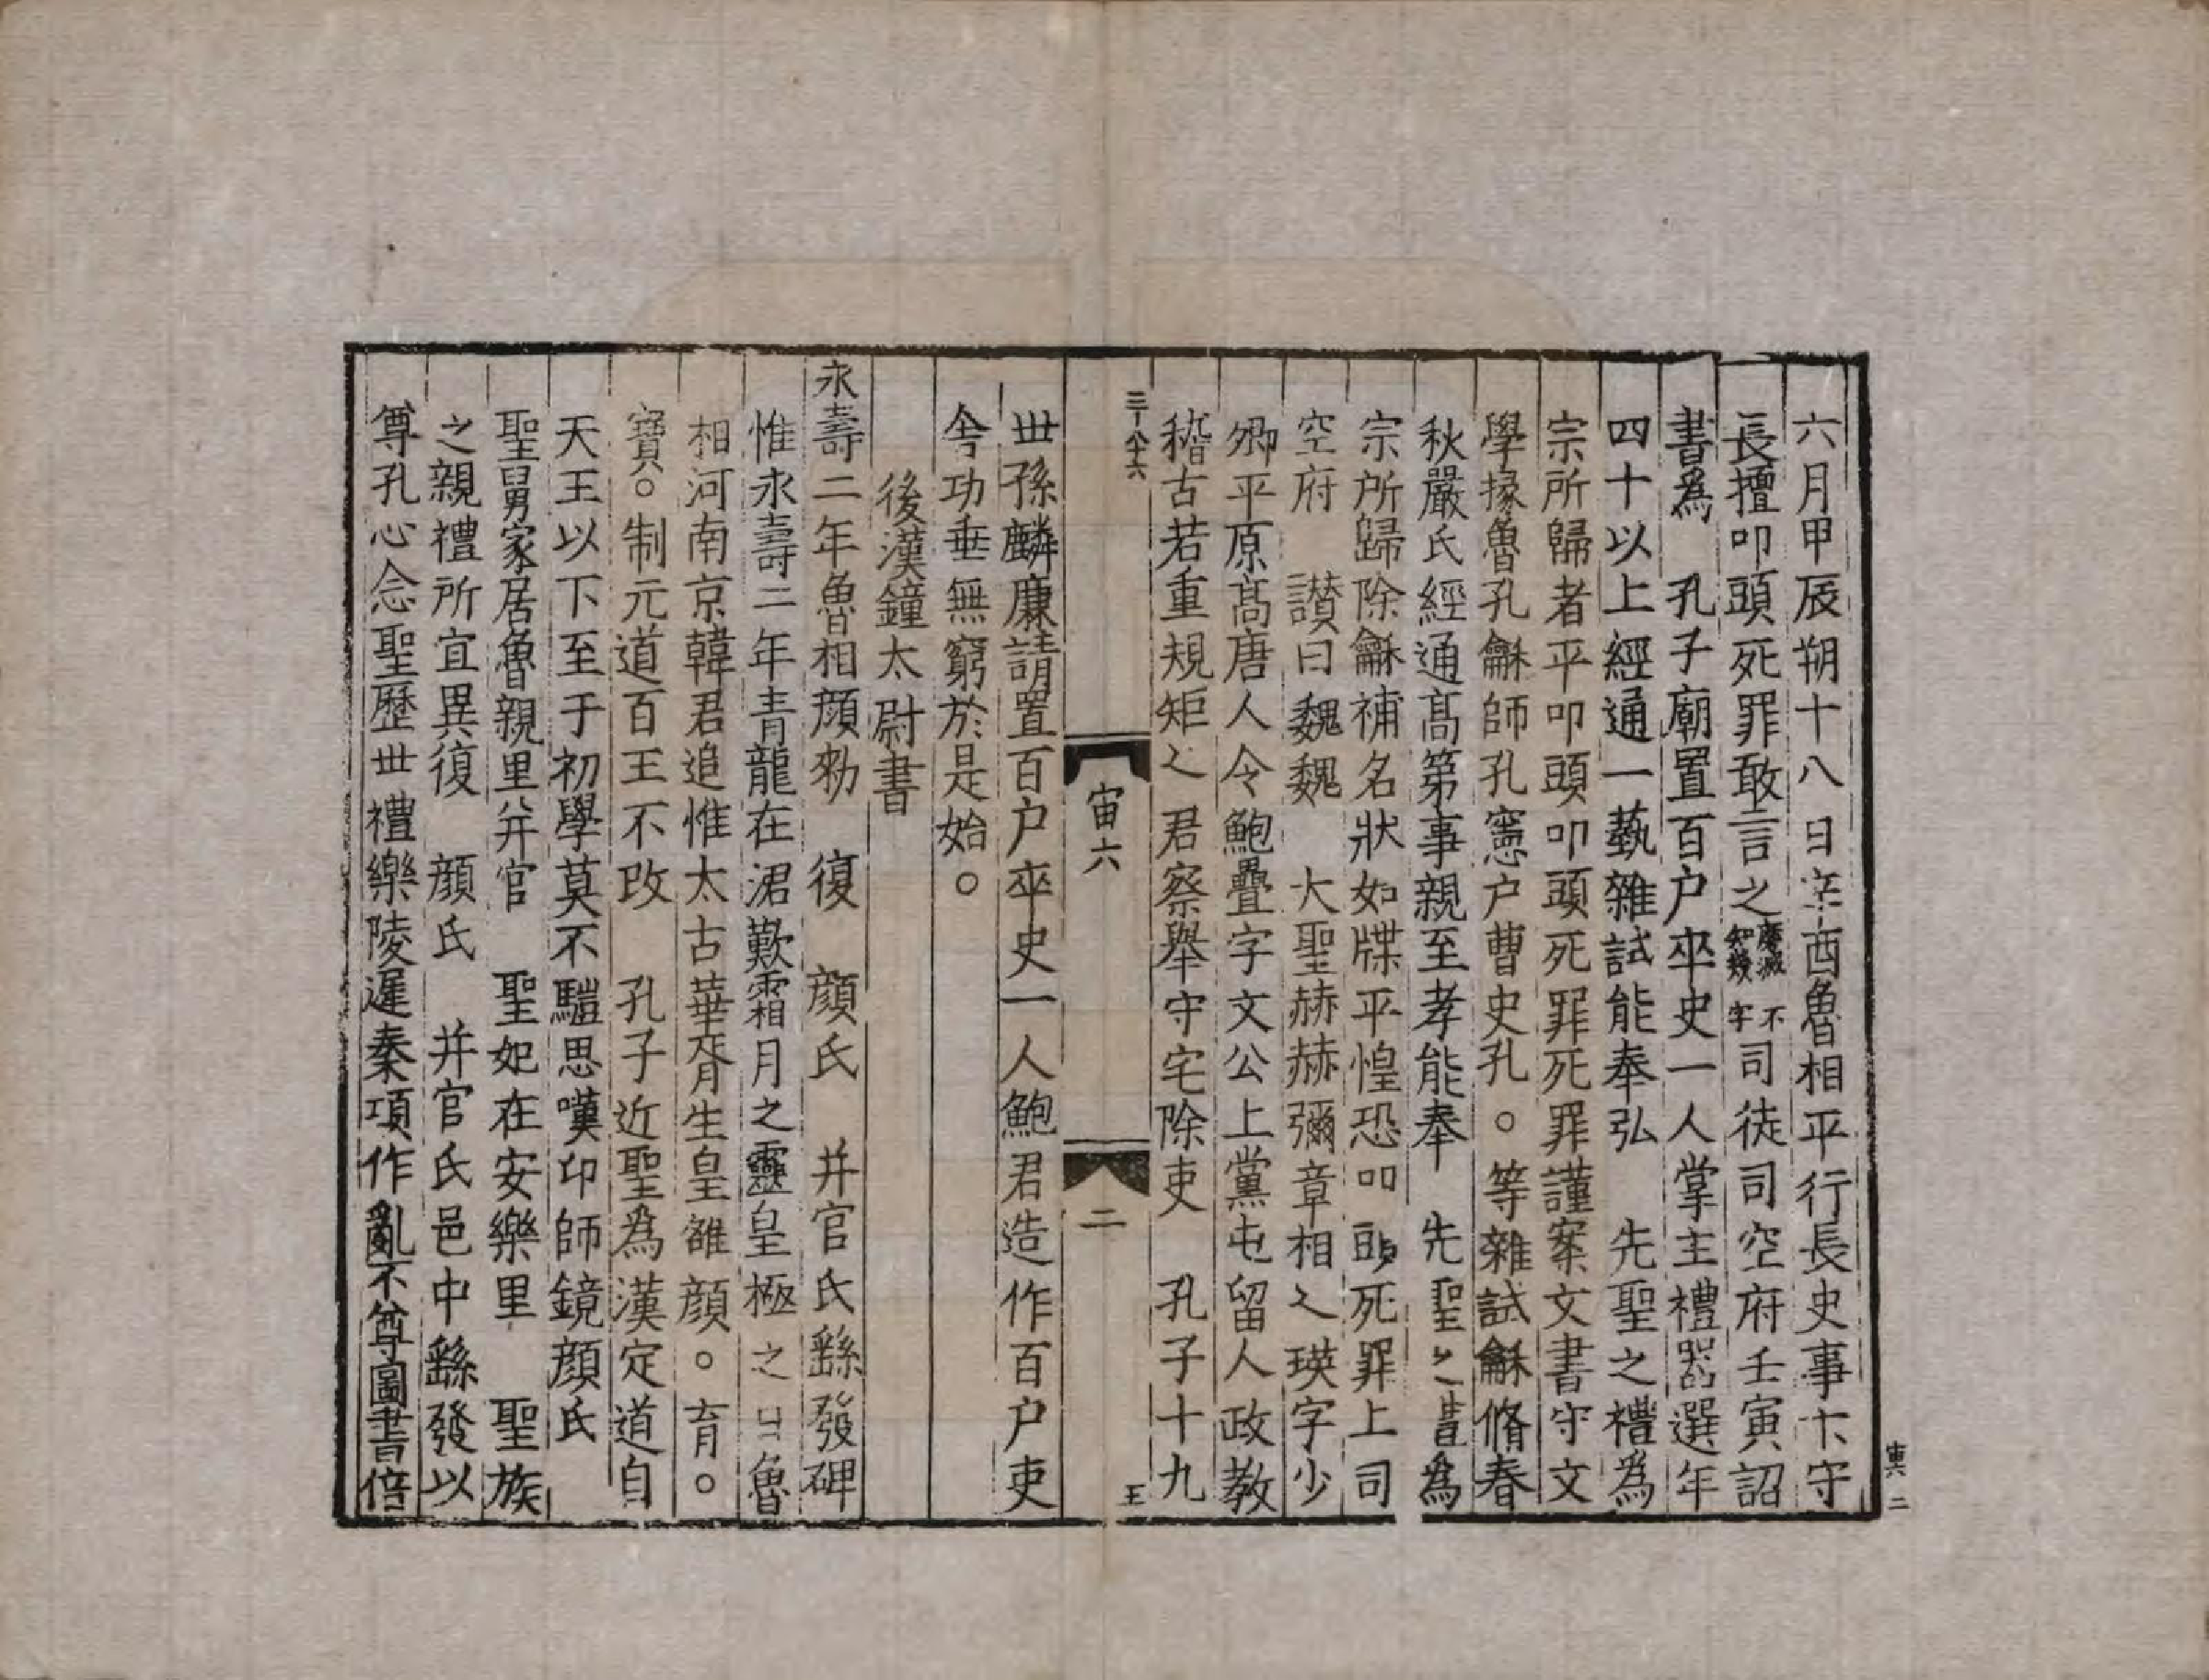 六月甲辰朔十八日辛酉魯相平行長史事卞守
長擅叩頭死罪敢言之磨滅不知幾字司徒司空府壬寅詔
書爲　孔子廟置百户卒史一人掌主禮器選年
四十以上經通一藝雜試能奉弘　先聖之禮爲
宗所歸者平叩頭叩頭死罪死罪謹案文書守文
學掾魯孔龢師孔憲户曹史孔○等雜試龢脩春
秋嚴氏經通高第事親至孝能奉　先聖之禮爲
宗所歸除龢補名狀如牒平惶恐叩頭死罪上司
空府　讃曰巍巍　大聖赫赫彌章相乀瑛字少
卿平原髙唐人令鮑疊字文公上黨屯留人政教
稽古若重規矩乀君察舉守宅除吏　孔子十九
三千八十六
宙六
二
王
世孫麟廉請置百户卒史一人鮑君造作百户吏
舎功垂無窮於是始○
後漢鐘太尉書
永壽二年魯相顔勑　復　顔氏　并官氏繇發碑
惟永壽二年青龍在涒歎霜月之靈皇極之日魯
相河南京韓君追惟太古華胥生皇雒顔○育○
寶○制元道百王不改　孔子近聖爲漢定道自
天王以下至于初學莫不騹思嘆卬師鏡顔氏
聖舅家居魯親里并官　聖妃在安樂里　聖族
之親禮所宜異復　顔氏　并官氏邑中繇發以
尊孔心念聖歷世禮樂陵遲秦項作亂不尊圖書倍
宙六　二